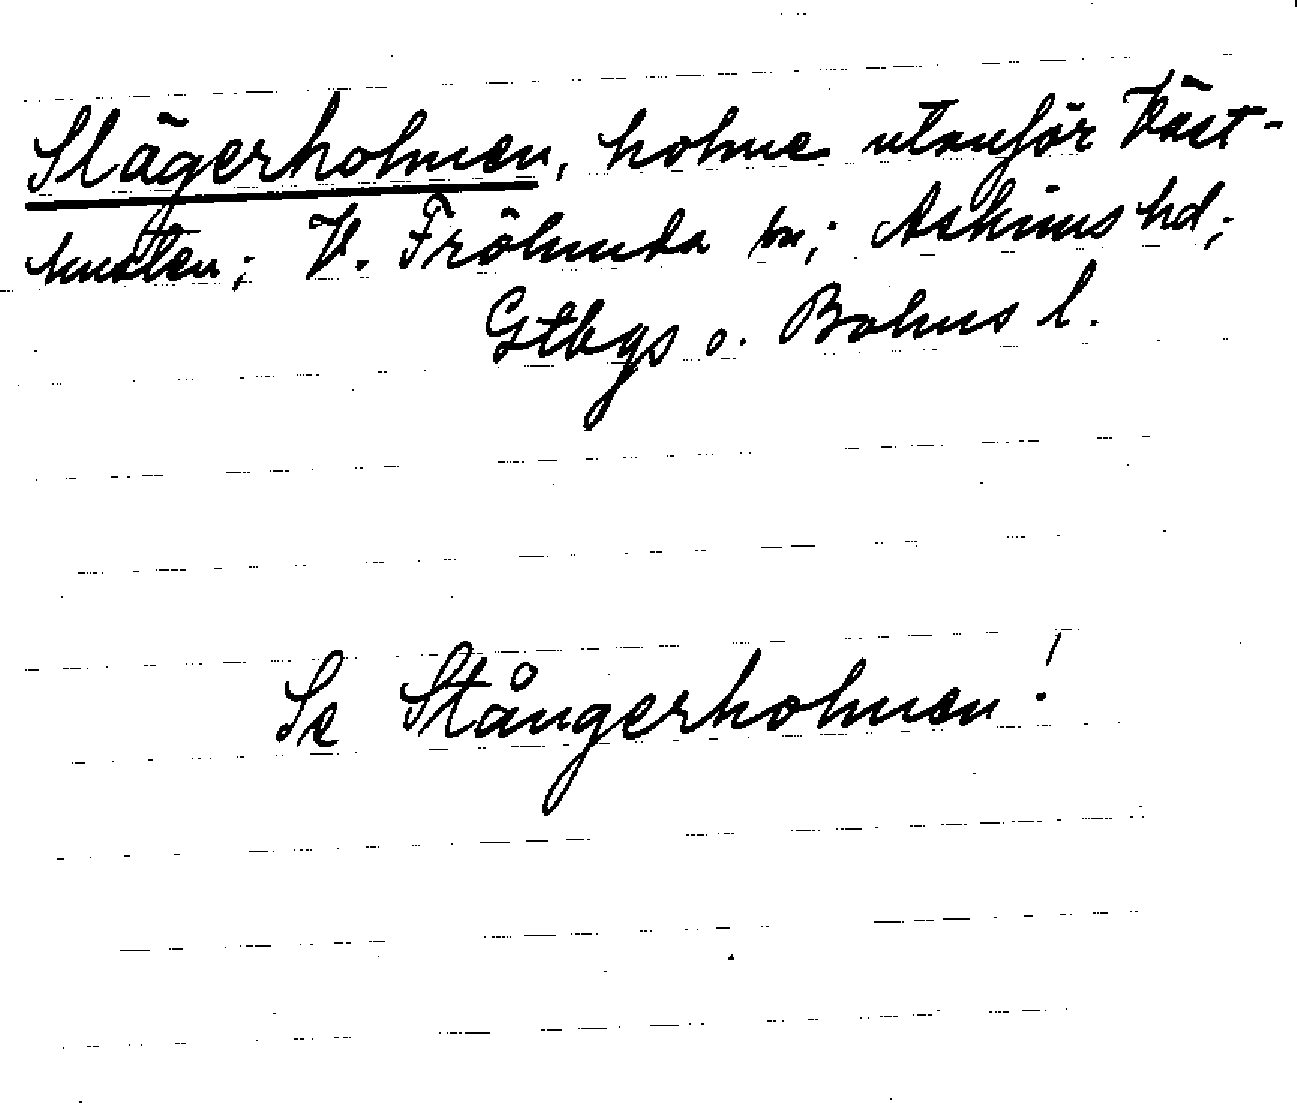 Slägerholmen, holme utanför Väst-
kusten; V. Frölunda sn; Askims hd;
Gtbgs o. Bohus l.
Se Stångerholmen!